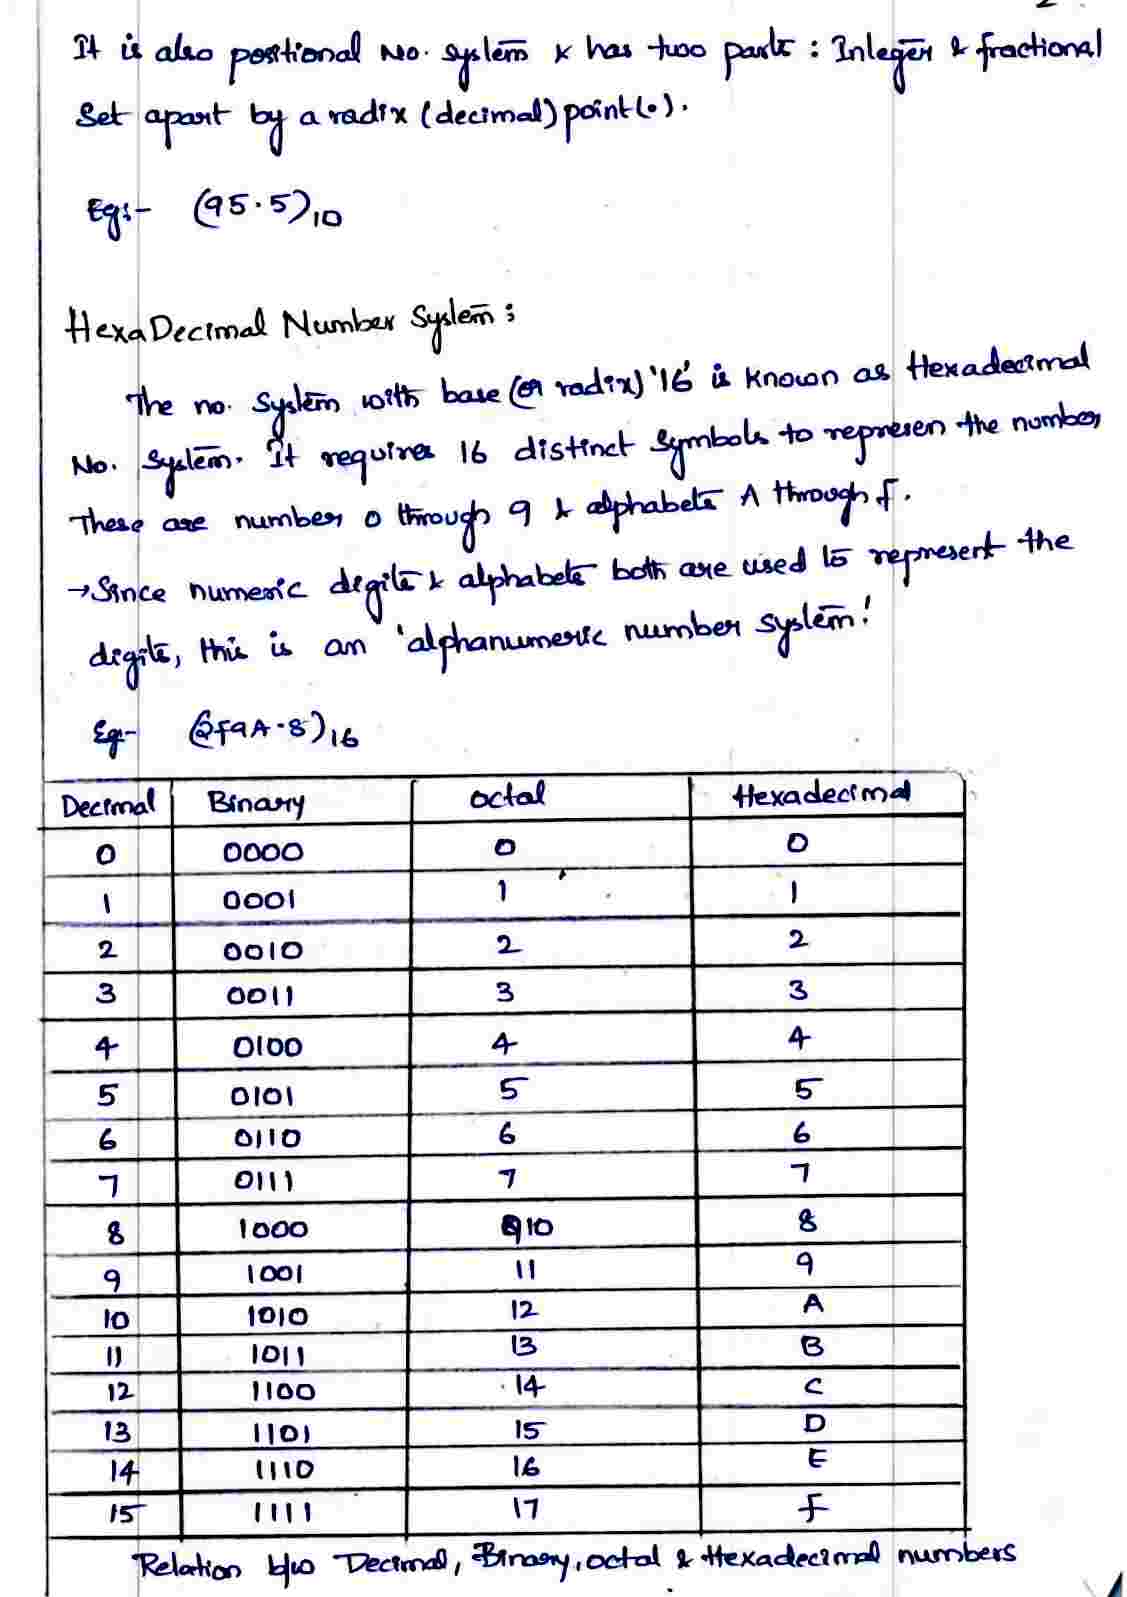 It is also positional No. system & has two parts : Integer & fractional
Set apart by a radix (decimal) point(.).
Eg:- (95.5)10
HexaDecimal Number System :
The no. System with base (or radix) '16' is known as Hexadecimal
No. System. It requires 16 distinct symbols to represen the number,
These are number 0 through 9 & alphabets A through f.
→ Since numeric digits & alphabets both are used to represent the
digits, this is an 'alphanumeric number system!
Eg:- (2F9A.8)16
Decimal Binary Octal Hexadecimal
0 0000 0 0
1 0001 1 1
2 0010 2 2
3 0011 3 3
4 0100 4 4
5 0101 5 5
6 0110 6 6
7 0111 7 7
8 1000 10 8
9 1001 11 9
10 1010 12 A
11 1011 13 B
12 1100 14 C
13 1101 15 D
14 1110 16 E
15 1111 17 f
Relation b/w Decimal, Binary, octal & Hexadecimal numbers